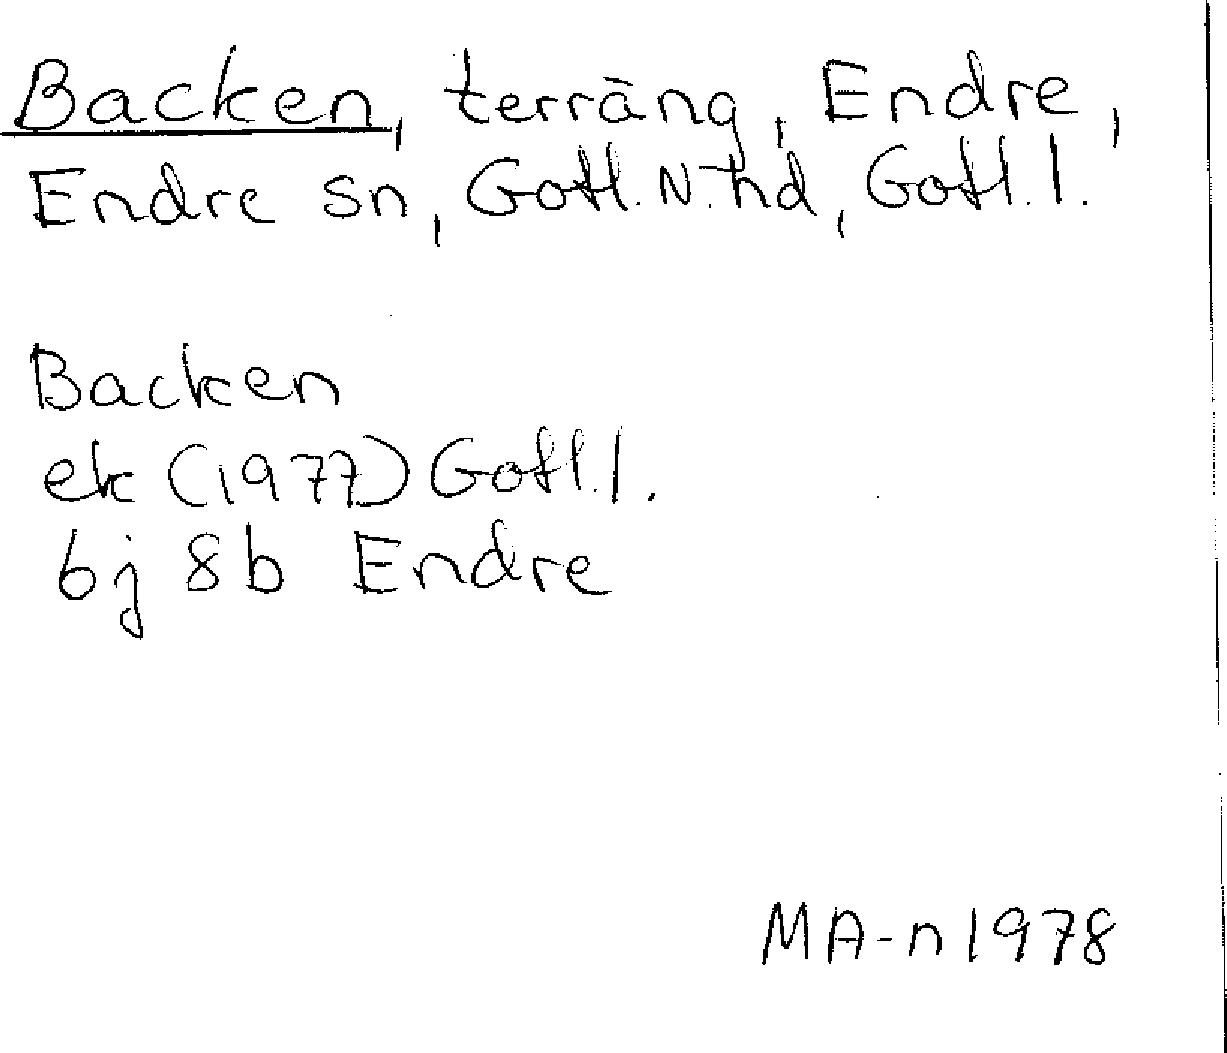 Backen, terräng, Endre,
Endre sn, Gotl. N. hd, Gotl. l.
Backen
ek (1977) Gotl. l.
6j 8b Endre
MA-n 1978